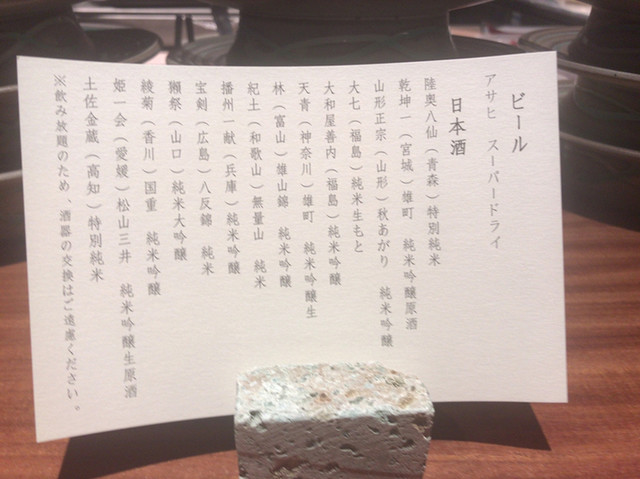 ビール
アサヒ　スーパードライ
日本酒
陸奥八仙（青森）特別純米
乾坤一（宮城）雄町　純米吟醸原酒
山形正宗（山形）秋あがり　純米吟醸
大七（福島）純米生もと
大和屋善内（福島）純米吟醸
天青（神奈川）雄町　純米吟醸生
林（富山）雄山錦　純米吟醸
紀土（和歌山）無量山　純米
播州一献（兵庫）純米吟醸
宝剣（広島）八反錦　純米
獺祭（山口）純米大吟醸
綾菊（香川）国重　純米吟醸
姫一会（愛媛）松山三井　純米吟醸生原酒
土佐金蔵（高知）特別純米
※飲み放題のため、酒器の交換はご遠慮ください。